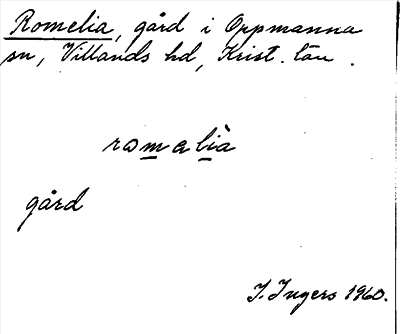 Romelia, gård i Oppmanna
sn, Villands hd, Krist. län.
romalìa
gård
I. Ingers 1960.